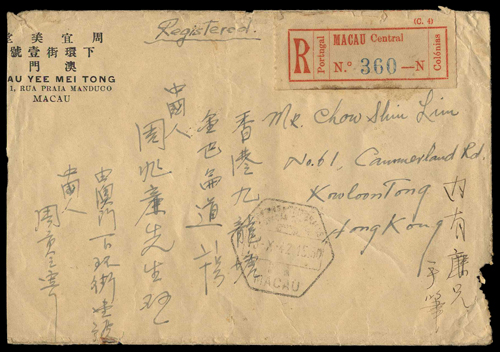 周宜美堂
下環街壹號
澳門
AU YEE MEI TONG
1, RUA PRAIA MANDUCO
MACAU
Registered.
(C. 4)
R
Portugal
MACAU Central
N.º 360—N
Colónias
Mr. Chow Shiu Lim
No. 61, Cammerland Rd.
KowloonTong
HongKong
香港九龍塘
金巴倫道
中國人
周兆廉先生
中國人
內有廉兄
手筆
MACAU